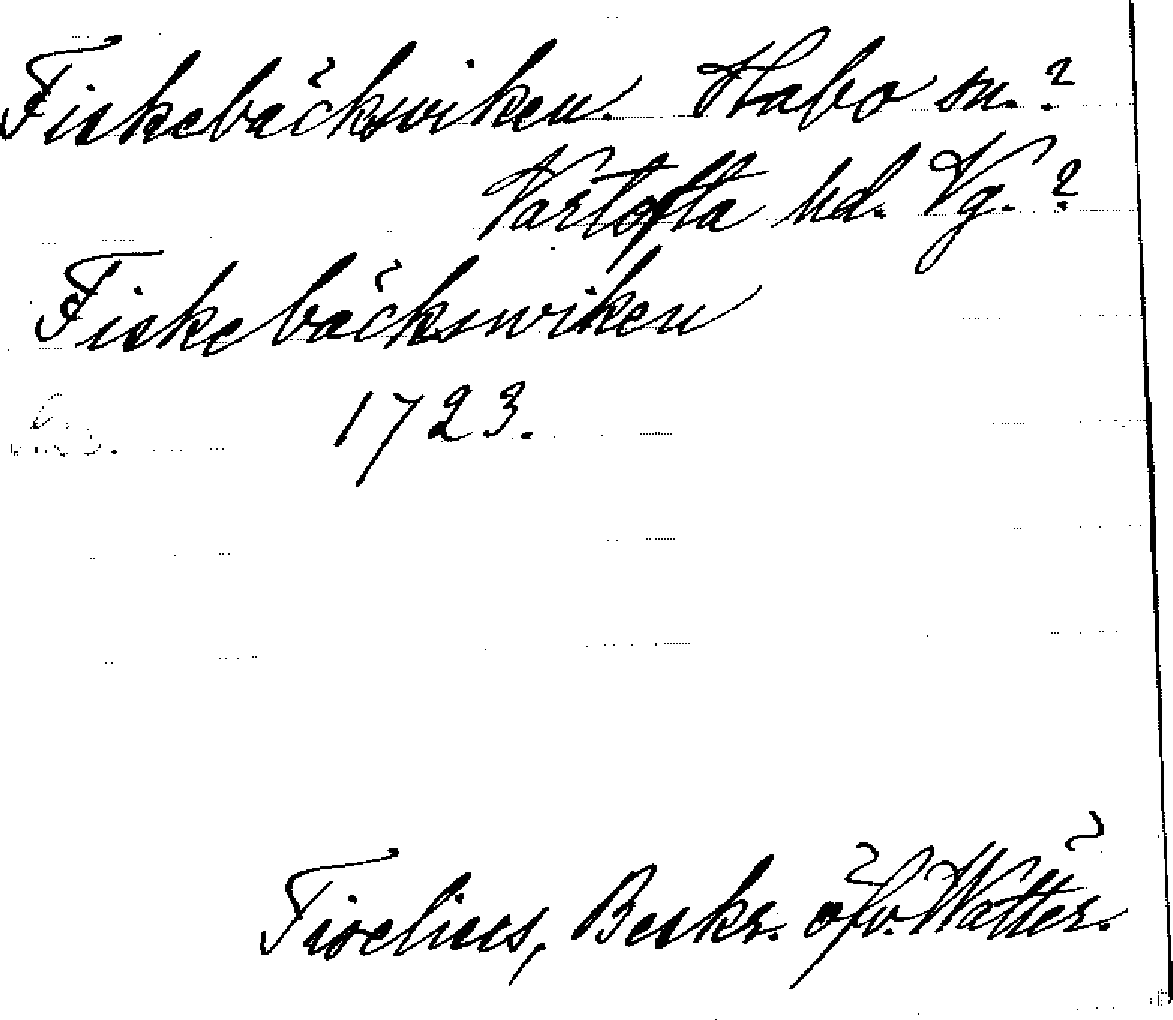 Fiskebäckswiken. Habo sn.?
Vartofta hd. Vg.?
Fiskebäckswiken
1723.
Tiselius, Beskr. öfv. Wätter.